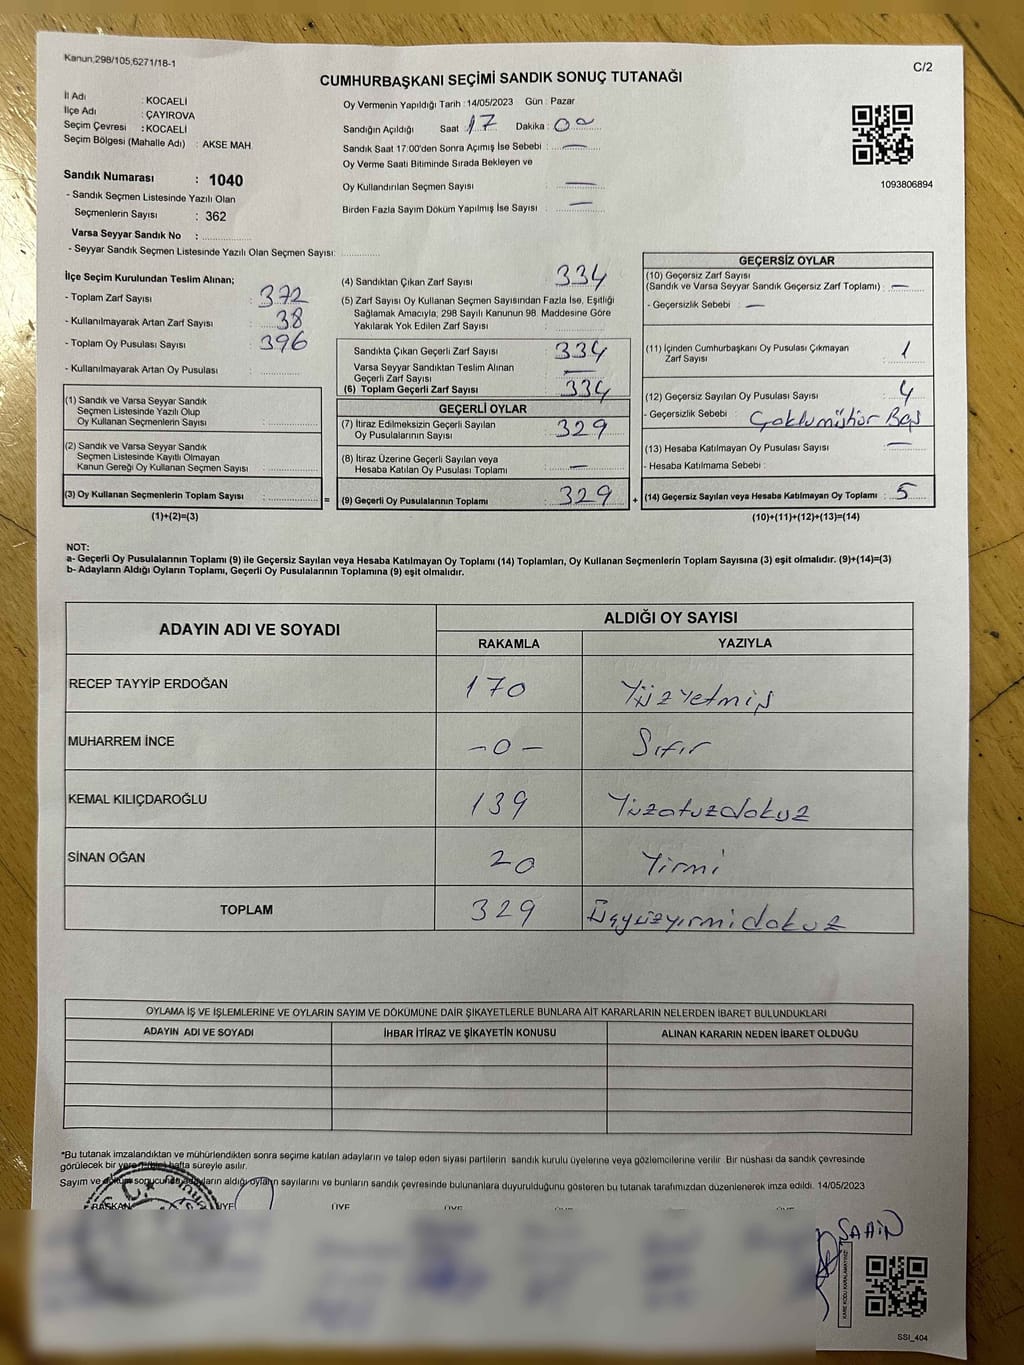 Kanun,298/105,6271/18-1
C/2
CUMHURBAŞKANI SEÇİMİ SANDIK SONUÇ TUTANAĞI
İl Adı : KOCAELİ
İlçe Adı : ÇAYIROVA
Seçim Çevresi : KOCAELİ
Seçim Bölgesi (Mahalle Adı) : AKSE MAH.
Sandık Numarası : 1040
- Sandık Seçmen Listesinde Yazılı Olan
Seçmenlerin Sayısı : 362
Varsa Seyyar Sandık No :
- Seyyar Sandık Seçmen Listesinde Yazılı Olan Seçmen Sayısı:
Oy Vermenin Yapıldığı Tarih : 14/05/2023 Gün : Pazar
Sandığın Açıldığı Saat 17 Dakika : 00
Sandık Saat 17:00'den Sonra Açımış İse Sebebi : —
Oy Verme Saati Bitiminde Sırada Bekleyen ve
Oy Kullandırılan Seçmen Sayısı : —
Birden Fazla Sayım Döküm Yapılmış İse Sayısı : —
1093806894
İlçe Seçim Kurulundan Teslim Alınan;
- Toplam Zarf Sayısı : 372
- Kullanılmayarak Artan Zarf Sayısı : 38
- Toplam Oy Pusulası Sayısı : 396
- Kullanılmayarak Artan Oy Pusulası :
(1) Sandık ve Varsa Seyyar Sandık
Seçmen Listesinde Yazılı Olup
Oy Kullanan Seçmenlerin Sayısı :
(2) Sandık ve Varsa Seyyar Sandık
Seçmen Listesinde Kayıtlı Olmayan
Kanun Gereği Oy Kullanan Seçmen Sayısı :
(3) Oy Kullanan Seçmenlerin Toplam Sayısı :
(1)+(2)=(3)
(4) Sandıktan Çıkan Zarf Sayısı : 334
(5) Zarf Sayısı Oy Kullanan Seçmen Sayısından Fazla İse, Eşitliği
Sağlamak Amacıyla; 298 Sayılı Kanunun 98. Maddesine Göre
Yakılarak Yok Edilen Zarf Sayısı :
Sandıkta Çıkan Geçerli Zarf Sayısı : 334
Varsa Seyyar Sandıktan Teslim Alınan
Geçerli Zarf Sayısı : —
(6) Toplam Geçerli Zarf Sayısı : 334
GEÇERLİ OYLAR
(7) İtiraz Edilmeksizin Geçerli Sayılan
Oy Pusulalarının Sayısı : 329
(8) İtiraz Üzerine Geçerli Sayılan veya
Hesaba Katılan Oy Pusulası Toplamı : —
= (9) Geçerli Oy Pusulalarının Toplamı : 329
GEÇERSİZ OYLAR
(10) Geçersiz Zarf Sayısı
(Sandık ve Varsa Seyyar Sandık Geçersiz Zarf Toplamı) : —
- Geçersizlik Sebebi : —
(11) İçinden Cumhurbaşkanı Oy Pusulası Çıkmayan
Zarf Sayısı : 1
(12) Geçersiz Sayılan Oy Pusulası Sayısı : 4
- Geçersizlik Sebebi : Çoklu mühür
(13) Hesaba Katılmayan Oy Pusulası Sayısı : —
- Hesaba Katılmama Sebebi :
+ (14) Geçersiz Sayılan veya Hesaba Katılmayan Oy Toplamı : 5
(10)+(11)+(12)+(13)=(14)
NOT:
a- Geçerli Oy Pusulalarının Toplamı (9) ile Geçersiz Sayılan veya Hesaba Katılmayan Oy Toplamı (14) Toplamları, Oy Kullanan Seçmenlerin Toplam Sayısına (3) eşit olmalıdır. (9)+(14)=(3)
b- Adayların Aldığı Oyların Toplamı, Geçerli Oy Pusulalarının Toplamına (9) eşit olmalıdır.
ADAYIN ADI VE SOYADI
ALDIĞI OY SAYISI
RAKAMLA YAZIYLA
RECEP TAYYİP ERDOĞAN 170 Yüzyetmiş
MUHARREM İNCE -0- Sıfır
KEMAL KILIÇDAROĞLU 139 Yüzotuzdokuz
SİNAN OĞAN 20 Yirmi
TOPLAM 329 Üçyüzyirmidokuz
OYLAMA İŞ VE İŞLEMLERİNE VE OYLARIN SAYIM VE DÖKÜMÜNE DAİR ŞİKAYETLERLE BUNLARA AİT KARARLARIN NELERDEN İBARET BULUNDUKLARI
ADAYIN ADI VE SOYADI İHBAR İTİRAZ VE ŞİKAYETİN KONUSU ALINAN KARARIN NEDEN İBARET OLDUĞU
*Bu tutanak imzalandıktan ve mühürlendikten sonra seçime katılan adayların ve talep eden siyasi partilerin sandık kurulu üyelerine veya gözlemcilerine verilir. Bir nüshası da sandık çevresinde
görülecek bir yere hafta süreyle asılır.
Sayım ve döküm sonucunda adayların aldığı oyların sayılarını ve bunların sandık çevresinde bulunanlara duyurulduğunu gösteren bu tutanak tarafımızdan düzenlenerek imza edildi. 14/05/2023
BAŞKAN ÜYE ÜYE ÜYE ÜYE ÜYE
ŞAHİN
KARE KODU KARALAMAYINIZ!
SSI_404